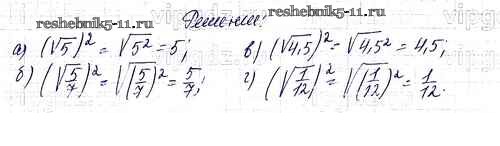 reshebnik5-11.ru Решение: reshebnik5-11.ru
а) (√5)² = √5² = 5; в) (√4,5)² = √4,5² = 4,5;
б) (√5/7)² = √(5/7)² = 5/7; г) (√1/12)² = √(1/12)² = 1/12.